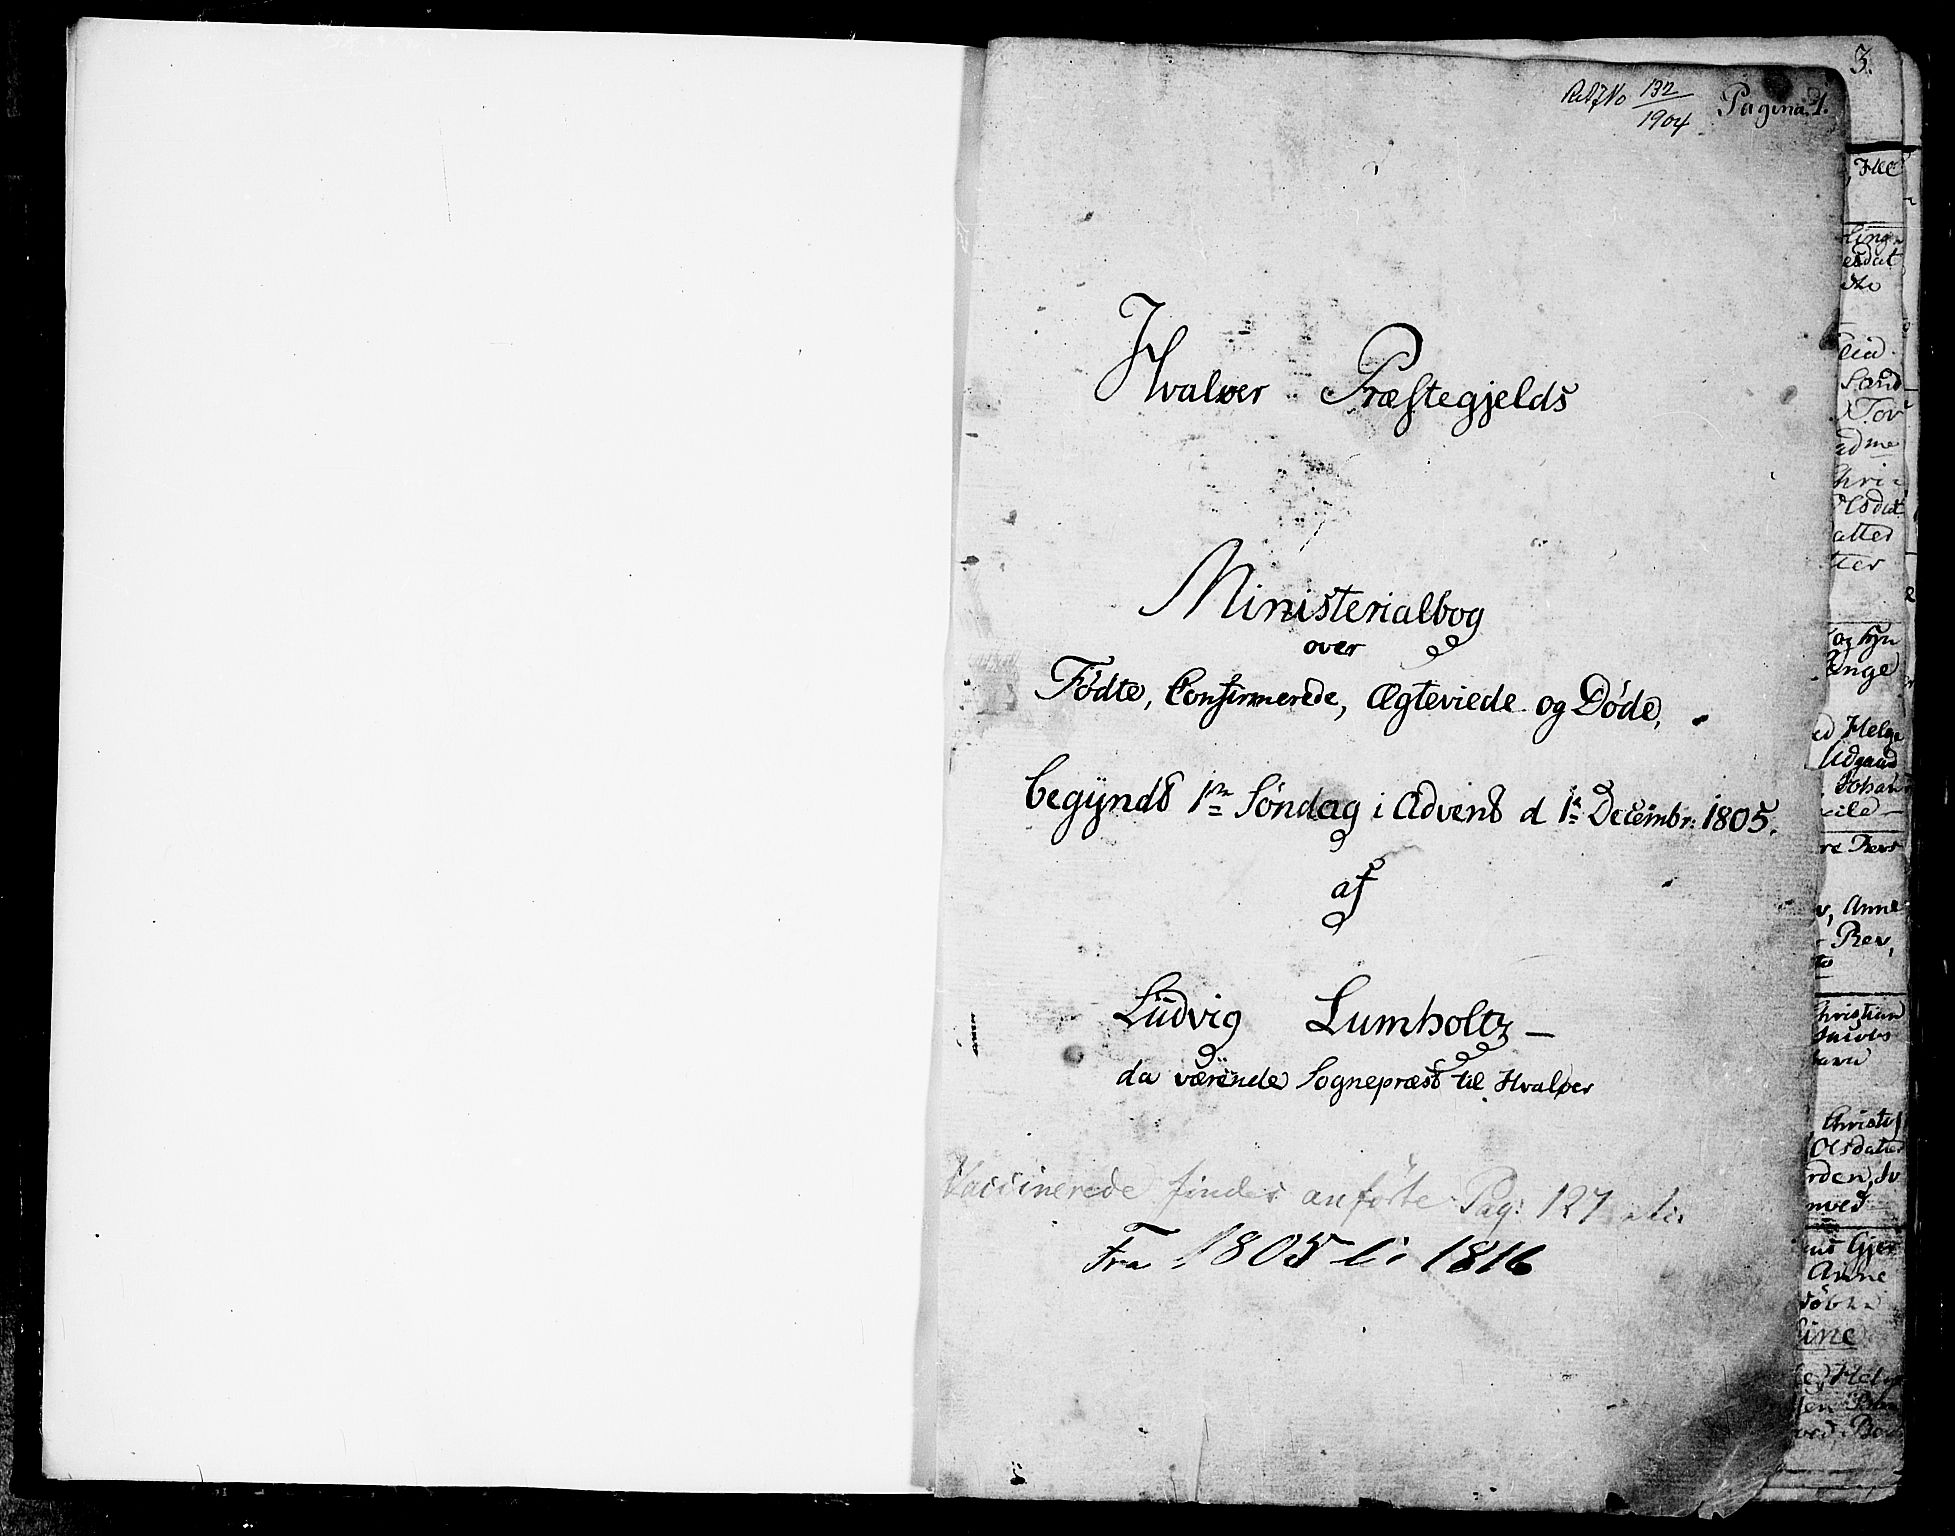 3.
132
1904
Pagina 1.
Hvaløer Præstegjelds
Ministerialbog
over
Fødte, Confirmerede, Ægteviede og Døde,
begyndt 1ste Søndag i Advent d 1ste Decembr: 1805.
af
Ludvig Lumholtz
da værende Sognepræst til Hvaløer
Vaccinerede findes anførte Pag: 127
Fra 1805 til 1816